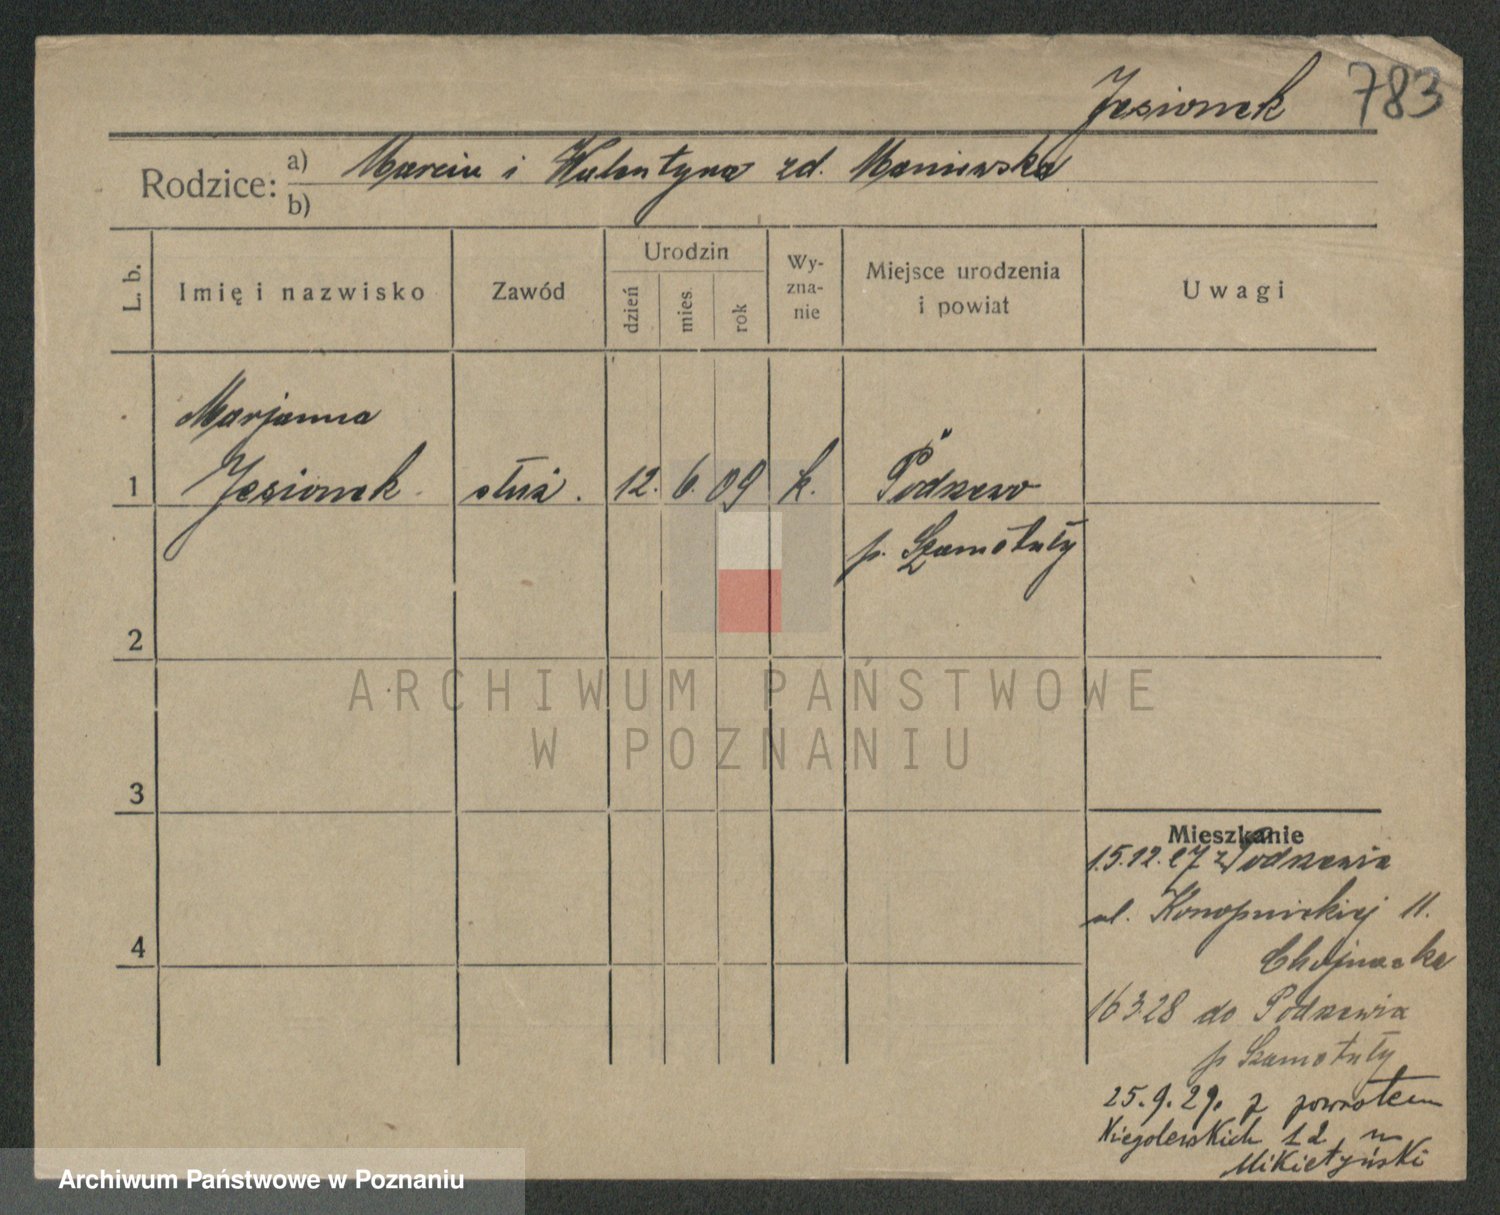 Jesionek 783
Rodzice: a) Marcin i Walentyna zd. Maniewska
b)
L. b. Imię i nazwisko Zawód Urodzin dzień mies. rok Wy-zna-nie Miejsce urodzenia i powiat Uwagi
Marjanna
1 Jesionek służ. 12. 6. 09 k. Podrzewo
p. Szamotuły
2
ARCHIWUM PAŃSTWOWE
W POZNANIU
3
Mieszkanie
15.12.27 z Podrzewia
ul. Konopnickiej 11.
4
Chojnacka
16 3 28 do Podrzewia
p Szamotuły
25.9.29. z powrotem
Niegolewskich 12 m
Mikietyński
Archiwum Państwowe w Poznaniu